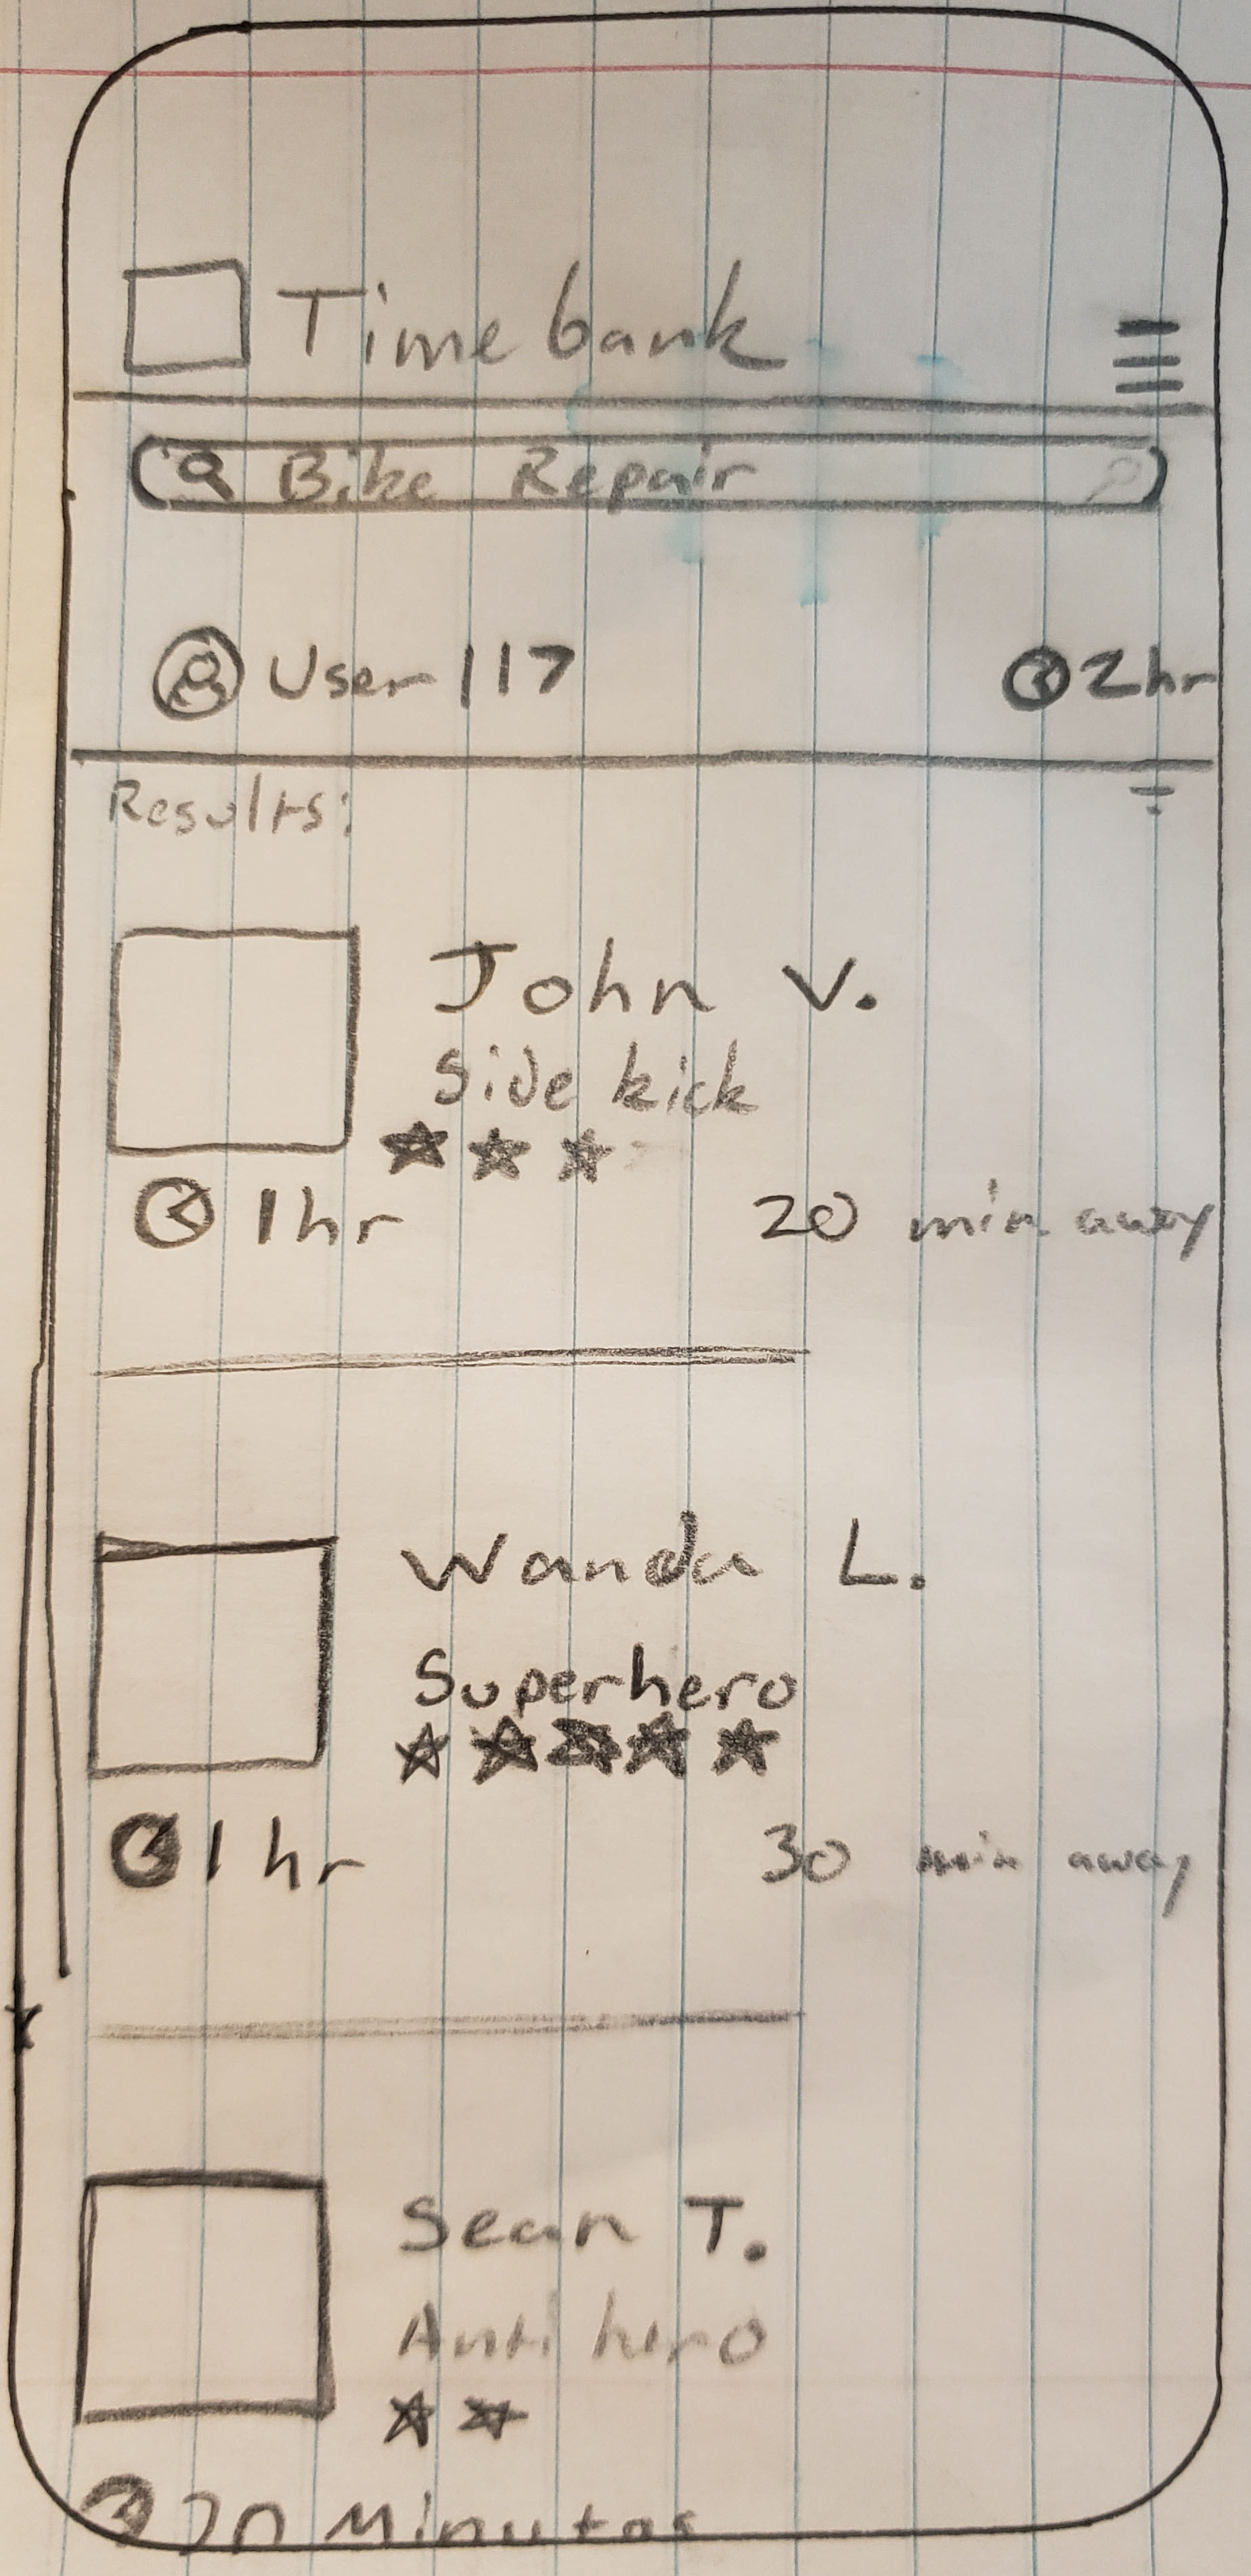 Time bank
Bike Repair
User 117
2hr
Results:
John V.
Side kick
1hr
20 min away
Wanda L.
Superhero
1 hr
30 min away
Sean T.
Anti hero
Minutes